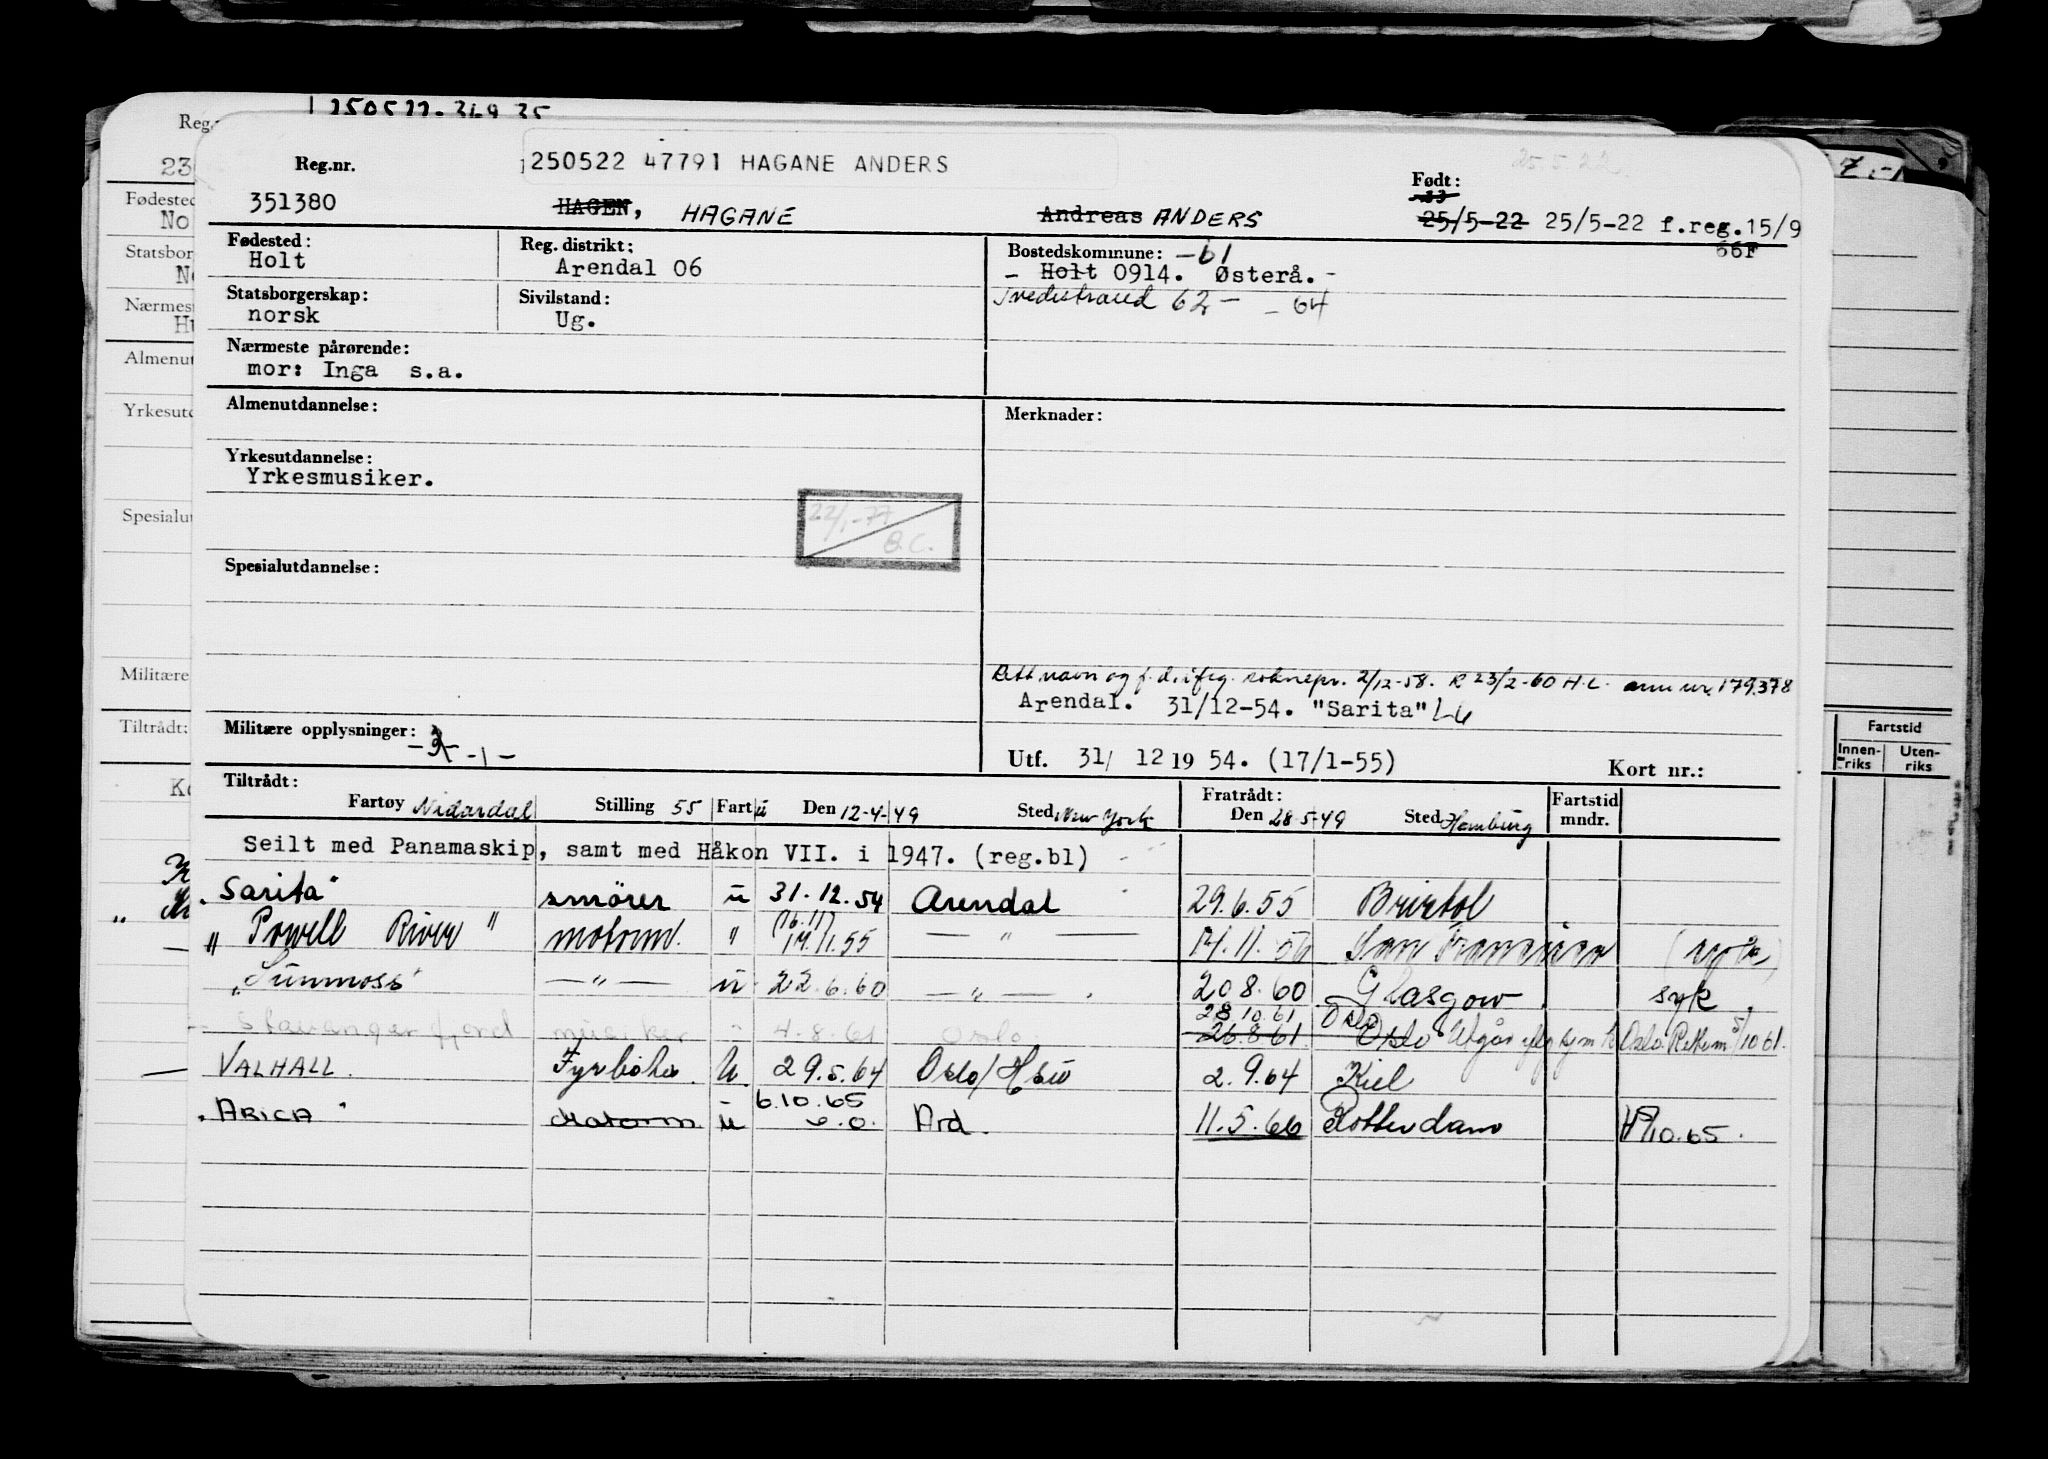 250522-369 35
Reg.nr.
250522 47791 HAGANE ANDERS
25.5.22
Født:
351380 HAGEN, HAGANE Andreas ANDERS 25/5-22 25/5-22 f.reg.15/9
66F
Fødested: Reg. distrikt: Bostedskommune: -61
Holt Arendal 06 - Holt 0914. Østerå.-
Statsborgerskap: Sivilstand: Tvedestrand 62- -64
norsk Ug.
Nærmeste pårørende:
mor: Inga s.a.
Almenutdannelse: Merknader:
Yrkesutdannelse:
Yrkesmusiker.
22/1-77
Spesialutdannelse:
Rett navn og f.d. ifflg. 2/12-58. R 23/2-60 H.L. ann nr. 179.378
Arendal. 31/12-54. "Sarita"
Militære opplysninger:
-1-
Utf. 31/ 12 19 54. (17/1-55) Kort nr.:
Tiltrådt: Fratrådt: Fartstid
Fartøy Nidardal Stilling 55 Fart u Den 12-4-49 Sted New York Den 28-5-49 Sted Hamburg mndr.
Seilt med Panamaskip, samt med Håkon VII. i 1947. (reg.bl)
"Sarita" smører u 31.12.54 Arendal 29.6.55 Bristol
(16.11)
"Powell River" motorm. " 14.11.55 — " — 14.11.56 San Francisco
"Sunmoss" — " — u 22.6.60 — " — 20.8.60 Glasgow syk
28.10.61 Oslo
Stavangerfjord musiker " 4.8.61 Oslo 26.8.61 Oslo Oslo
VALHALL Fyrbøter U 29.5.64 Oslo/ 2.9.64 Kiel
6.10.65
"ARICA" Motorm u Ard. 11.5.66 Rotterdam 10.65.
Reg.
23
Fødested
No
Statsbor
Nærmes
Almenut
Yrkesutd
Spesialut
Militære
Tiltrådt:
Fartstid
Innen-
riks
Uten-
riks